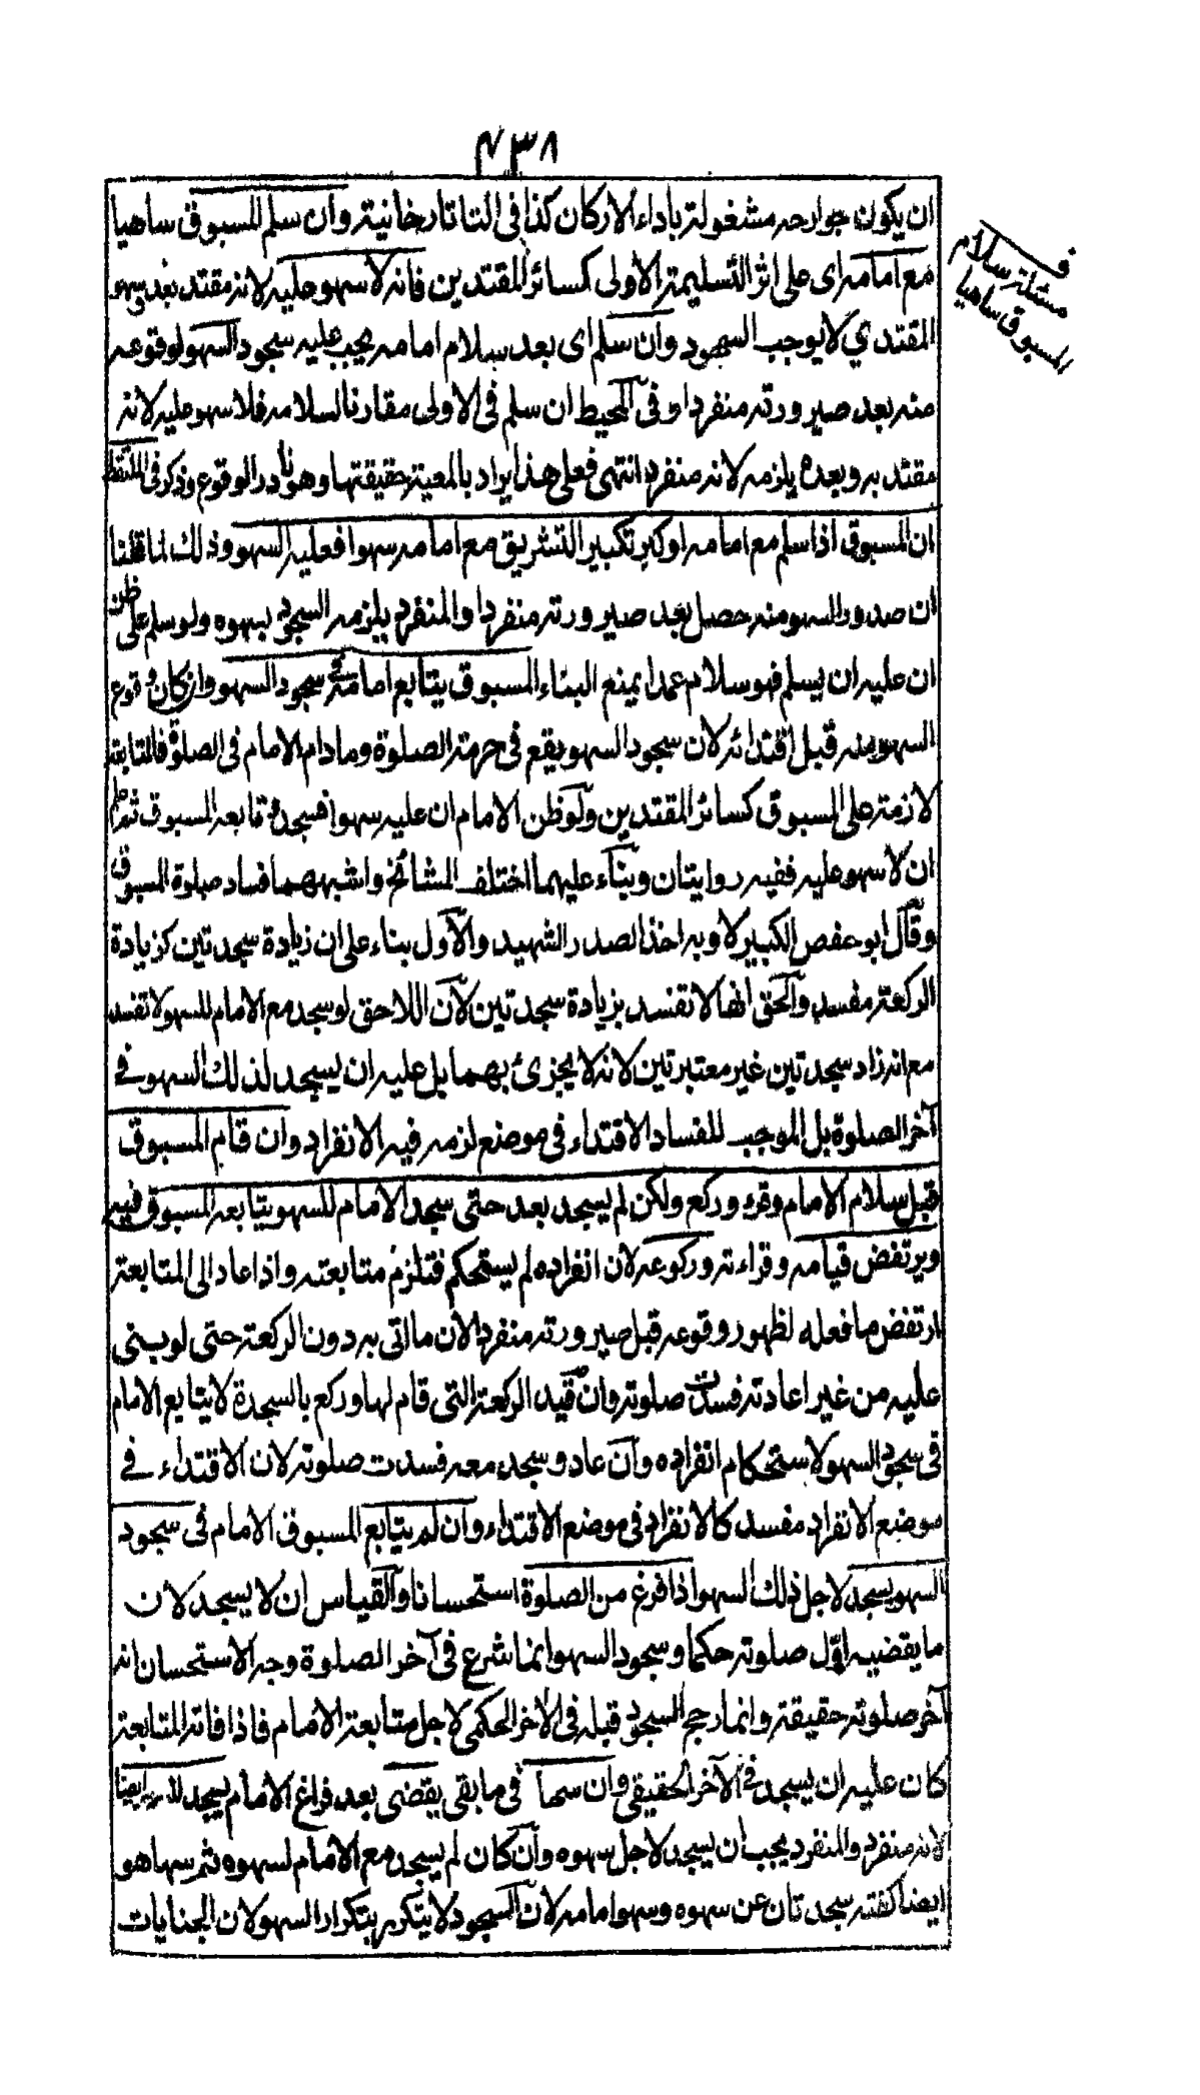 ٤٣٨
ان يكون جوارحه مشغولة باداء الاركان كذا فى التاتارخانية وان سلم المسبوق ساهيا
مع امامه اى على اثر التسليمة الاولى كسائر المقتدين فانه لا سهو عليه لانه مقتد بعد وسهو
المقتدي لا يوجب السجود وان سلم اى بعد سلام امامه يجب عليه سجود السهو لوقوعه
منه بعد صيرورته منفردا وفى المحيط ان سلم فى الاولى مقارنا لسلامه فلا سهو عليه لانه
مقتد به وبعده يلزمه لانه منفرد انتهى فعلى هذا يراد بالمعية حقيقتها وهو نادر الوقوع وذكر فى الملتقط
ان المسبوق اذا سلم مع امامه او كبر تكبير التشريق مع امامه سهوا فعليه السهو وذلك لما قلنا
ان صدور السهو منه حصل بعد صيرورته منفردا والمنفرد يلزمه السجود بسهوه ولو سلم على ظن
ان عليه ان يسلم فهو سلام عمدا يمنع البناء المسبوق يتابع امامه فى سجود السهو وان كان وقوع
السهو منه قبل اقتدائه لان سجود السهو يقع فى حرمة الصلوة وما دام الامام فى الصلوة فالمتابعة
لازمة على المسبوق كسائر المقتدين ولو ظن الامام ان عليه سهوا فسجد تابعه المسبوق ثم علم
ان لا سهو عليه ففيه روايتان وبناء عليهما اختلف المشائخ واشبههما فساد صلوة المسبوق
وقال ابو حفص الكبير لا وبه اخذ الصدر الشهيد والاول بناء على ان زيادة سجدتين كزيادة
الركعة مفسد والحق انها لا تفسد بزيادة سجدتين لان اللاحق لو سجد مع الامام للسهو لا تفسد
مع انه زاد سجدتين غير معتبرتين لانه لا يجزئ بهما بل عليه ان يسجد لذلك السهو فى
آخر الصلوة بل الموجب للفساد الاقتداء فى موضع لزمه فيه الانفراد وان قام المسبوق
قبل سلام الامام وقرء وركع ولكن لم يسجد بعد حتى سجد الامام للسهو يتابعه المسبوق فيه
ويرتفض قيامه وقراءته وركوعه لان انفراده لم يستحكم فتلزم متابعته واذا عاد الى المتابعة
ارتفض ما فعله لظهور وقوعه قبل صيرورته منفردا لان ما اتى به دون الركعة حتى لو بنى
عليه من غير اعادته فسدت صلوته وان قيد الركعة التى قام لها وركع بالسجدة لا يتابع الامام
فى سجود السهو لاستحكام انفراده وان عاد وسجد معه فسدت صلوته لان الاقتداء فى
موضع الانفراد مفسد كالانفراد فى موضع الاقتداء وان لم يتابع المسبوق الامام فى سجود
السهو يسجد لاجل ذلك السهو اذا فرغ من الصلوة استحسانا والقياس ان لا يسجد لان
ما يقضيه اول صلوته حكما وسجود السهو انما شرع فى آخر الصلوة وجه الاستحسان انه
آخر صلوته حقيقة وانما رجح السجود قبله فى الاخر الحكمى لاجل متابعة الامام فاذا فاته المتابعة
كان عليه ان يسجد فى الآخر الحقيقى وان سها فى ما بقى يقضى بعد فراغ الامام يسجد ايضا
لانه منفرد والمنفرد يجب ان يسجد لاجل سهوه وان كان لم يسجد مع الامام لسهوه ثم سها هو
ايضا كفته سجدتان عن سهوه وسهو امامه لان السجود لا يتكرر بتكرار السهو لان الجنايات
ف
مسئلة سلام
المسبوق ساهيا